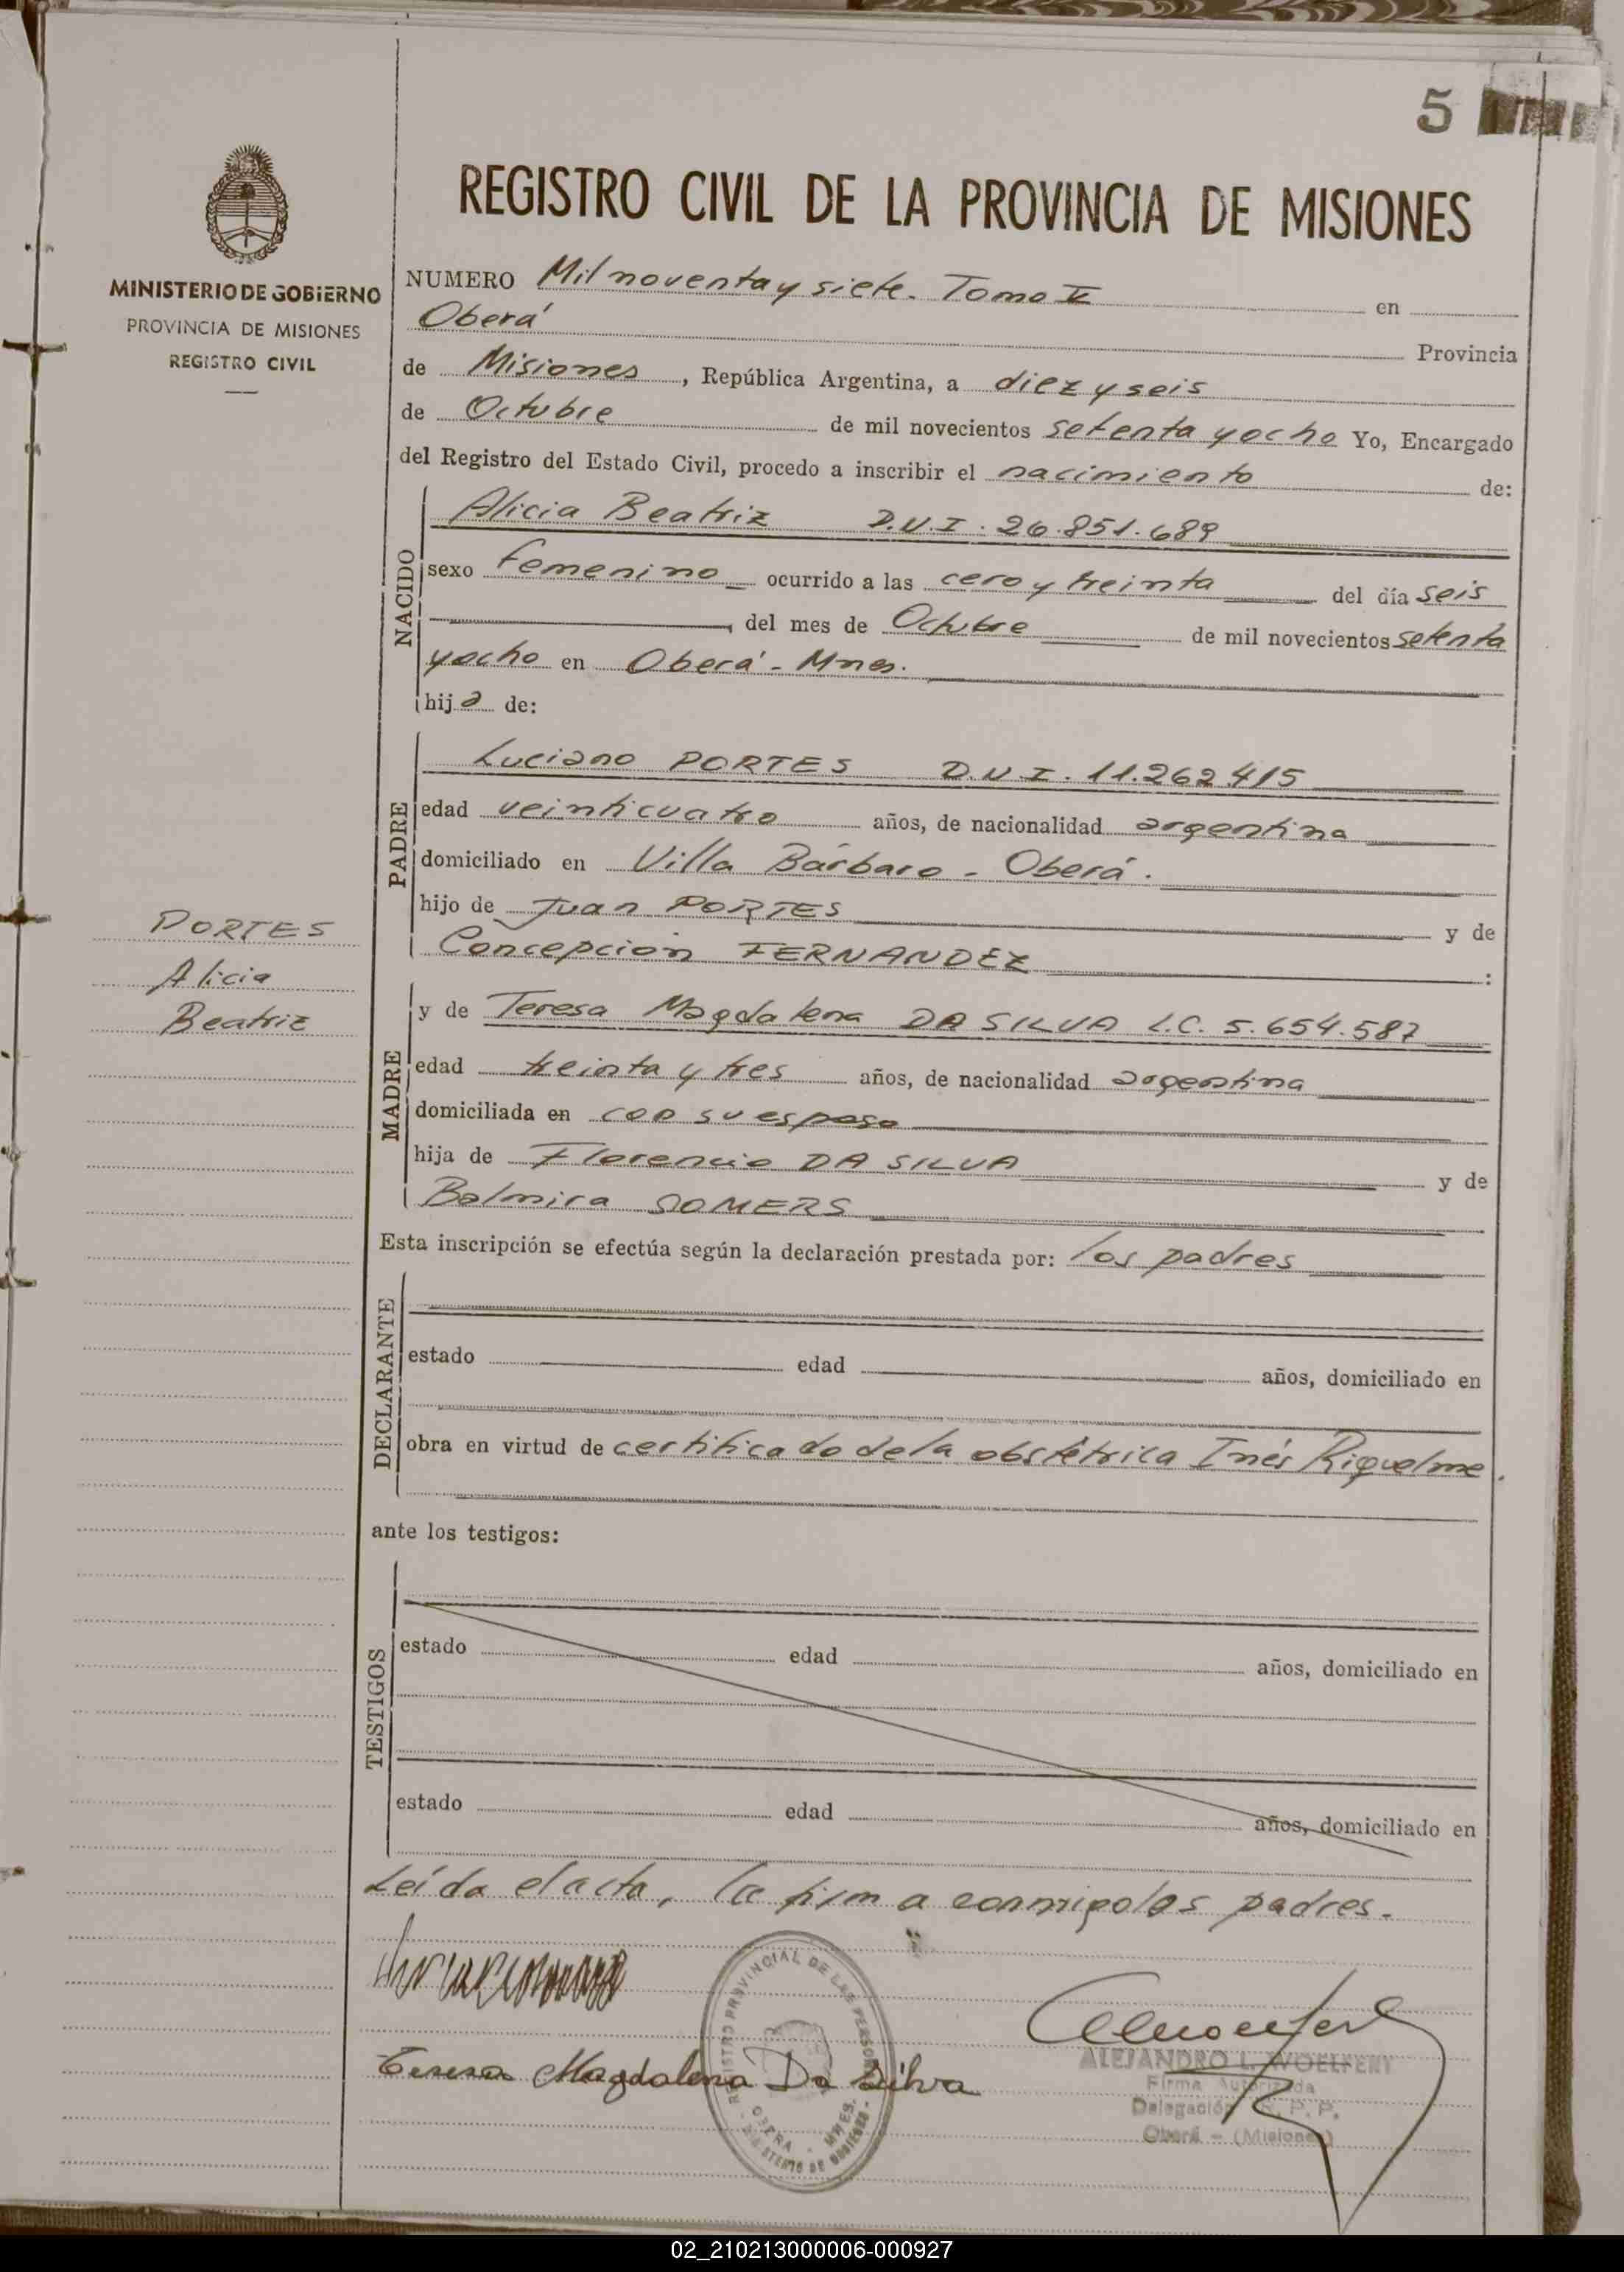 5
REGISTRO CIVIL DE LA PROVINCIA DE MISIONES
MINISTERIO DE GOBIERNO
PROVINCIA DE MISIONES
REGISTRO CIVIL
NUMERO Mil noventa y siete. Tomo II en
Oberá Provincia
de Misiones, República Argentina, a diez y seis
de Octubre de mil novecientos setenta y ocho Yo, Encargado
del Registro del Estado Civil, procedo a inscribir el nacimiento de:
NACIDO
Alicia Beatriz D.N.I. 26.851.689
sexo Femenino ocurrido a las cero y treinta del día seis
del mes de Octubre de mil novecientos setenta
y ocho en Oberá - Mnes.
hija de:
PADRE
Luciano PORTES D.N.I. 11.262.415
edad veinticuatro años, de nacionalidad argentina
domiciliado en Villa Bárbaro - Oberá.
hijo de Juan PORTES y de
Concepción FERNANDEZ :
PORTES
Alicia
Beatriz
MADRE
y de Teresa Magdalena DA SILVA L.C. 5.654.587
edad treinta y tres años, de nacionalidad argentina
domiciliada en con su esposo
hija de Florencio DA SILVA y de
Balmira SOMERS
Esta inscripción se efectúa según la declaración prestada por: los padres
DECLARANTE
estado edad años, domiciliado en
obra en virtud de certificado de la obstétrica Inés Riquelme.
ante los testigos:
TESTIGOS
estado edad años, domiciliado en
estado edad años, domiciliado en
Leída el acta, la firma conmigo los padres.
Teresa Magdalena Da Silva
REGISTRO PROVINCIAL DE LAS PERSONAS
OBERA - MNES.
MINISTERIO DE GOBIERNO
ALEJANDRO L. WOELFERT
Firma Autorizada
Delegación R. P. P.
Oberá - (Misiones)
02_210213000006-000927